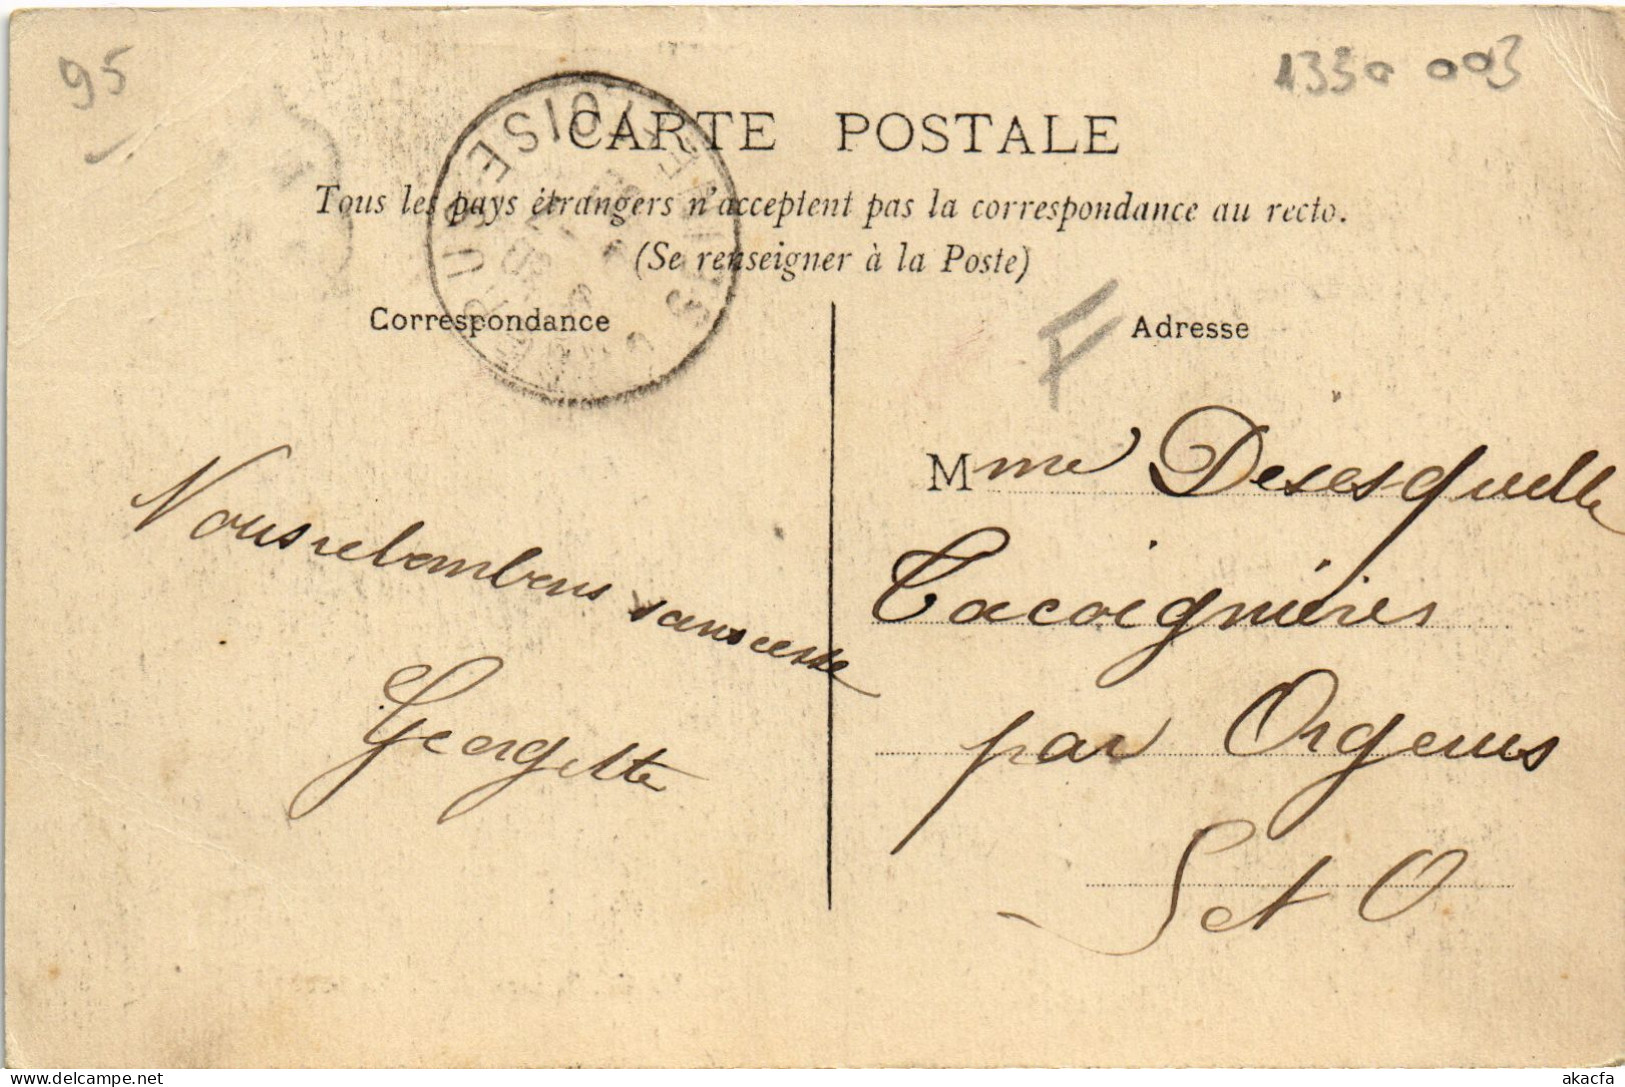 95
1330 003
CARTE POSTALE
Tous les pays étrangers n'acceptent pas la correspondance au recto.
(Se renseigner à la Poste)
Correspondance
F
Adresse
Mme Desesquelle
Tacoignières
par Orgerus
S et O
Nous retombons sans cesse
Georgette
SEINE-ET-OISE
akacfa